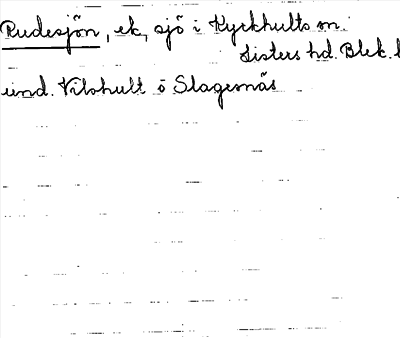 Rudesjön, ek, sjö i Kyrkhults sn.
Listers hd. Blek. l
und. Vilshult ö Slagesnäs